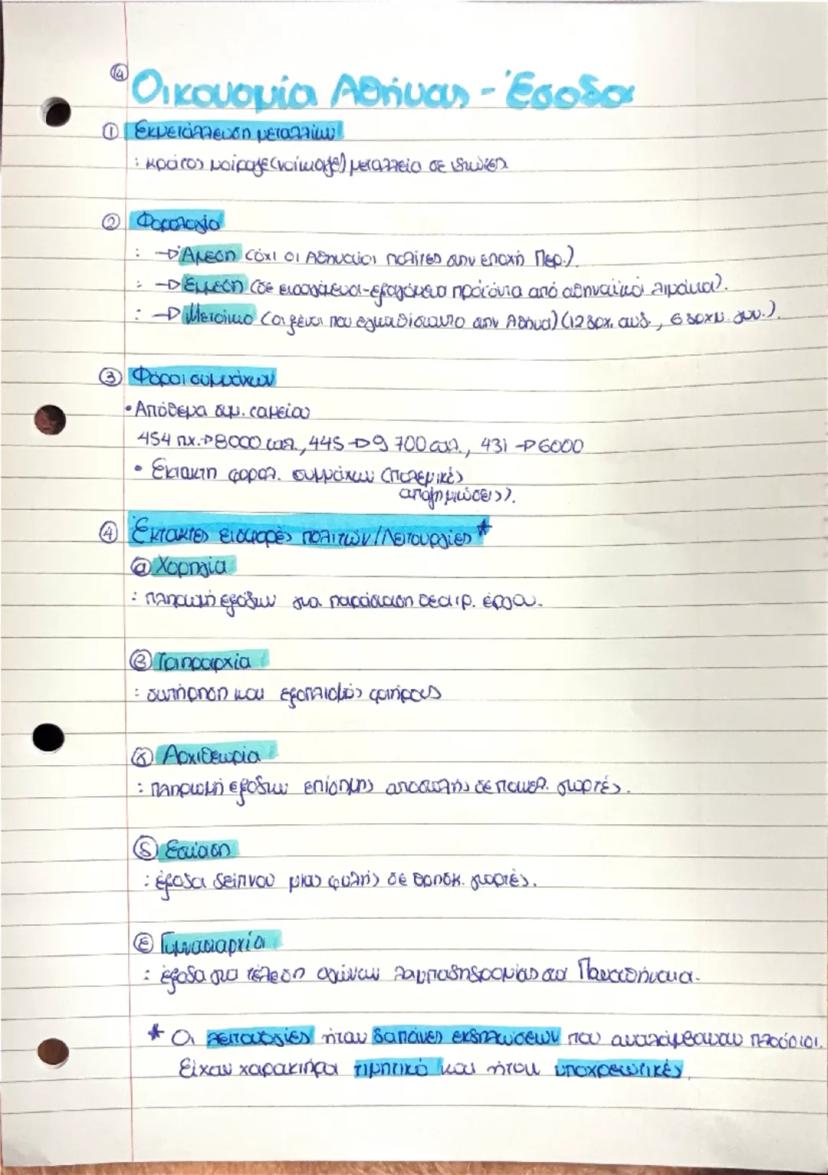 ④ Οικονομία Αθήνας - Έσοδα
① Εκμετάλλευση μεταλλίων
: κράτος μοίραζε(νοίκιαζε) μεταλλεία σε ιδιώτες
② Φορολογία
: → Άμεση (όχι οι Αθηναίοι πολίτες στην εποχή Περ.).
: → Έμμεση (σε εισαγόμενα-εξαγόμενα προϊόντα από αθηναϊκά λιμάνια).
: → Μετοίκιο (οι ξένοι που εγκαθίσταντο στην Αθήνα) (12 δρχ. ανδ., 6 δρχμ. γυν.).
③ Φόροι συμμάχων
• Απόθεμα συμ. ταμείου
454 π.χ.→8000 ταλ., 445 →9 700 ταλ., 431 →6000
• Έκτακτη φορολ. συμμάχων (πολεμικές
αποζημιώσεις).
④ Έκτακτες εισφορές πολιτών/Λειτουργίες *
ⓐ Χορηγία
: πληρωμή εξόδων για παράσταση θεατρ. έργου.
Ⓑ Τριηραρχία
: συντήρηση και εξοπλισμός τριήρους
ⓧ Αρχιθεωρία
: πληρωμή εξόδων επίσημης αποστολής σε πανελ. γιορτές.
ⓢ Εστίαση
: έξοδα δείπνου μιας φυλής σε θρησκ. γιορτές.
Ⓔ Γυμνασιαρχία
: έξοδα για τέλεση αγώνων λαμπαδηδρομίας στα Παναθήναια.
* Οι λειτουργίες ήταν δαπάνες εκδηλώσεων που αναλάμβαναν πλούσιοι.
Είχαν χαρακτήρα τιμητικό και ήταν υποχρεωτικές.